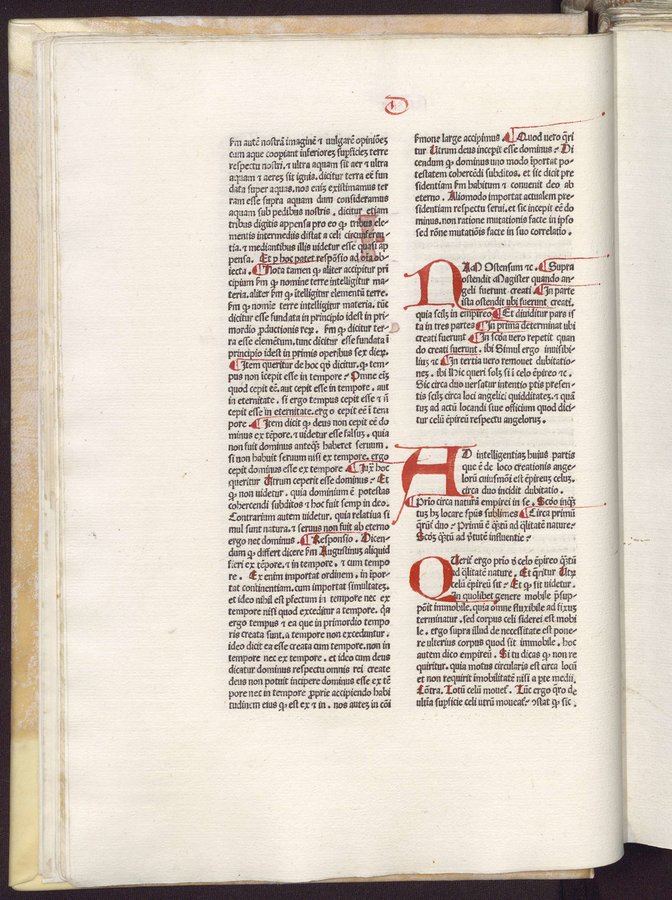 D
ẜm autē nostrā imaginē ⁊ vulgarē opinionē
cum aque coopiant inferiores supficies terre
respectu nostri, ⁊ ultra aquam sit aer ⁊ ultra
aquam ⁊ aerez sit ignis. dicitur terra eē fun
data super aquas. nos eniz existimamus ter
ram esse supra aquam dum consideramus
aquam sub pedibus nostris. dicitur etiam
tribus digitis appensa pro eo ꝙ tribus ele⸗
mentis intermediis distat a celi circūferen
tia. ⁊ mediantibus illis uidetur esse quasi ap
pensa. Et p hoc patet respōsio ad oīa ob⸗
iecta. ¶ Nota tamen ꝙ aliter accipitur pri
cipium ẜm ꝙ nomine terre intelligitur ma⸗
teria. aliter ẜm ꝙ ītelligitur elementū terre.
ẜm ꝙ noīe terre intelligitur materia. tūc
dicitur esse fundata in principio idest in pri
mordio productionis rex. ẜm ꝙ dicitur ter⸗
ra esse elemētum. tunc dicitur esse fundata ī
principio idest in primis operibus sex diex.
¶ Item queritur de hoc qd dicitur. ꝙ tem⸗
pus non īcepit esse in tempore. Omne eiz
quod cepit eē. aut cepit esse in tempore. aut
in eternitate. si ergo tempus cepit esse ⁊ ñ
cepit esse in eternitate. ergo cepit eē ī tem
pore. ¶ Item dicit ꝙ deus non cepit eē do
minus ex tēpore. ⁊ uidetur esse falsuz. quia
non fuit dominus anteqz haberet seruum.
si non habuit seruum nisi ex tempore. ergo
cepit dominus esse ex tempore ¶ Iux hoc
queritur Utrum ceperit esse dominus. Et
ꝙ non uidetur. quia dominium ē potestas
cohercendi subditos ⁊ hoc fuit semp in deo.
Contrarium autem uidetur. quia relatiua si
mul sunt natura. ⁊ seruus non fuit ab eterno
ergo nec dominus. ¶ Responsio. Dicen⸗
dum ꝙ differt dicere ẜm Augustinus aliquid
fieri ex tēpore. ⁊ in tempore. ⁊ cum tempo
re. Ex enim importat ordinem. in īpor⸗
tat continentiam. cum importat simultatez.
et ideo nihil est pfectum in tempore nec ex
tempore nisi quod exceditur a tempore. qa
ergo tempus ⁊ ea que in primordio tempo
ris creata sunt. a tempore non exceduntur.
ideo dicit ea esse creata cum tempore. non in
tempore nec ex tempore. et ideo cum deus
dicatur dominus respectu omnis rei create
deus non potuit incipere dominus esse ex tē
pore nec in tempore pprie accipiendo habi
tudinem eius ꝙ est ex ⁊ in. nos autez in cōi
ẜmone large accipimus ¶ Quod uero qri
tur Utrum deus incepit esse dominus. Di
cendum ꝙ dominus uno modo īportat po⸗
testatem cohercēdi subditos. et sic dicit pre
sidentiam ẜm habitum ⁊ conuenit deo ab
eterno. Aliomodo importat actualem pre⸗
sidentiam respectu serui. et sic incepit eē do
minus. non ratione mutationis facte in ipso
sed rōne mutatiōis facte in suo correlatio.
NAM Ostensum ⁊c. ¶ Supra
ostendit Magister quando an⸗
geli fuerunt creati ¶ In parte
ista ostendit ubi fuerunt creati.
quia scilz in empireo ¶ Et diuiditur pars is
ta in tres partes ¶ In prima determinat ubi
creati fuerunt ¶ In scda uero repetit quan
do creati fuerunt. ibi Simul ergo inuisibi⸗
lius ⁊c ¶ In tertia uero remouet dubitatio⸗
nez. ibi Hic queri solz si ī celo ēpireo ⁊c.
Sic circa duo uersatur intentio ptis presen⸗
tis scilz circa loci angelici quidditatez. ⁊ quā
tuz ad actū locandi siue officium quod dici⸗
tur celū ēpireū respectu angelorum.
AD intelligentiaz huius partis
que ē de loco creationis ange⸗
lorū cuiusmōi est ēpireuz celuz.
circa duo incidit dubitatio.
¶ Prio circa naturā empirei in se. Scdo inqtz
tuz hz locare spūs sublimes ¶ Circa primū
qrūt duo. Primū ē qtū ad qlitatē nature.
Scdz qtū ad vtutē influentie.
QUerit ergo prio de celo ēpireo qtū
ad qlitatē nature. Et qritur Utz
celū ēpireū sit. Et ꝙ sit uidetur.
In quolibet genere mobile psup⸗
pōit immobile. quia omne fluxibile ad fixuz
terminatur. sed corpus celi siderei est mobi
le. ergo supra illud de necessitate est pone⸗
re ulterius corpus quod sit immobile. hoc
autem dico empireū. Si tu dicas ꝙ non re
quiritur. quia motus circularis est circa locū
et non requirit īmobilitatē nisi a pte medii.
Cōtra. Totū celū mouet. Tūc ergo qro de
ultīa supficie celi utrū moueat. ⁊ stat ꝙ sic.